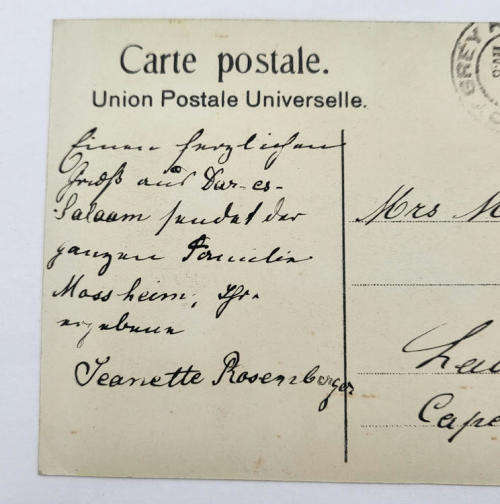 Carte postale.
Union Postale Universelle.
GREY
Einen herzlichen
Gruß aus Dar-es-
Salaam sendet der
ganzen Familie
Mossheim, Ihr
ergebene
Jeanette Rosenberger
Mrs M
La
Cape